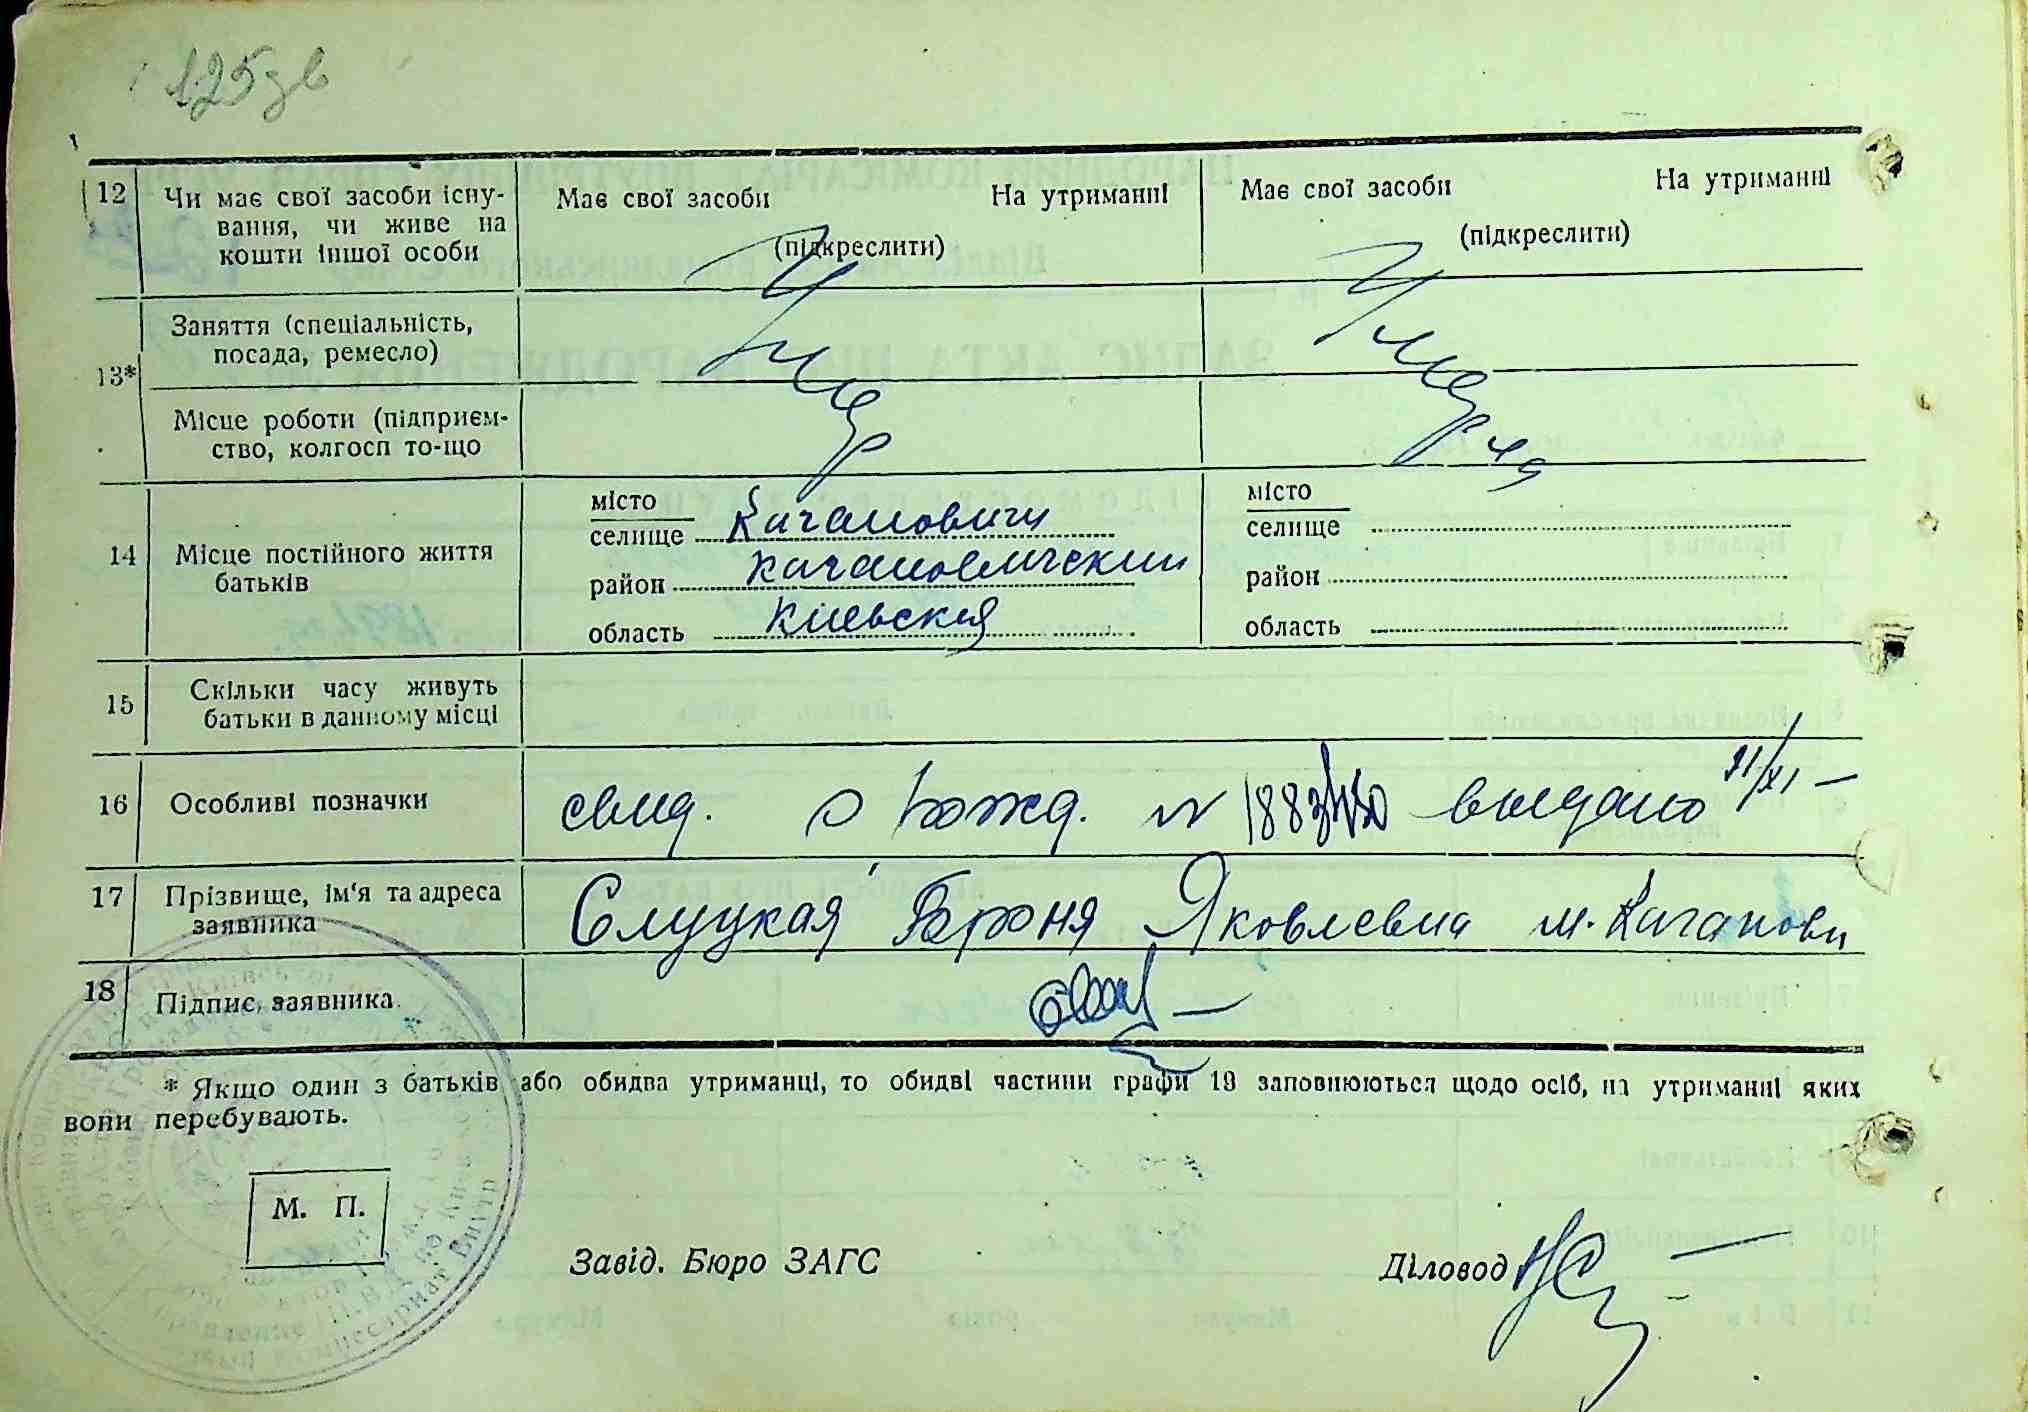 125 зв
12 Чи має свої засоби існу-
вання, чи живе на
кошти іншої особи
Має свої засоби На утриманні
(підкреслити)
Має свої засоби На утриманні
(підкреслити)
13*
Заняття (спеціальність,
посада, ремесло)
Умер
Умерла
Місце роботи (підприєм-
ство, колгосп то-що
14 Місце постійного життя
батьків
місто
селище Кагановичи
район Кагановичский
область Киевская
місто
селище
район
область
15 Скільки часу живуть
батьки в данному місці
16 Особливі позначки
свид. о рожд. выдано
17 Прізвище, ім'я та адреса
заявника
Слуцкая Броня Яковлевна м. Каганови
18 Підпис заявника
* Якщо один з батьків або обидва утриманці, то обидві частини графи 19 заповнюються щодо осіб, на утриманні яких
вони перебувають.
М. П.
Завід. Бюро ЗАГС
Діловод